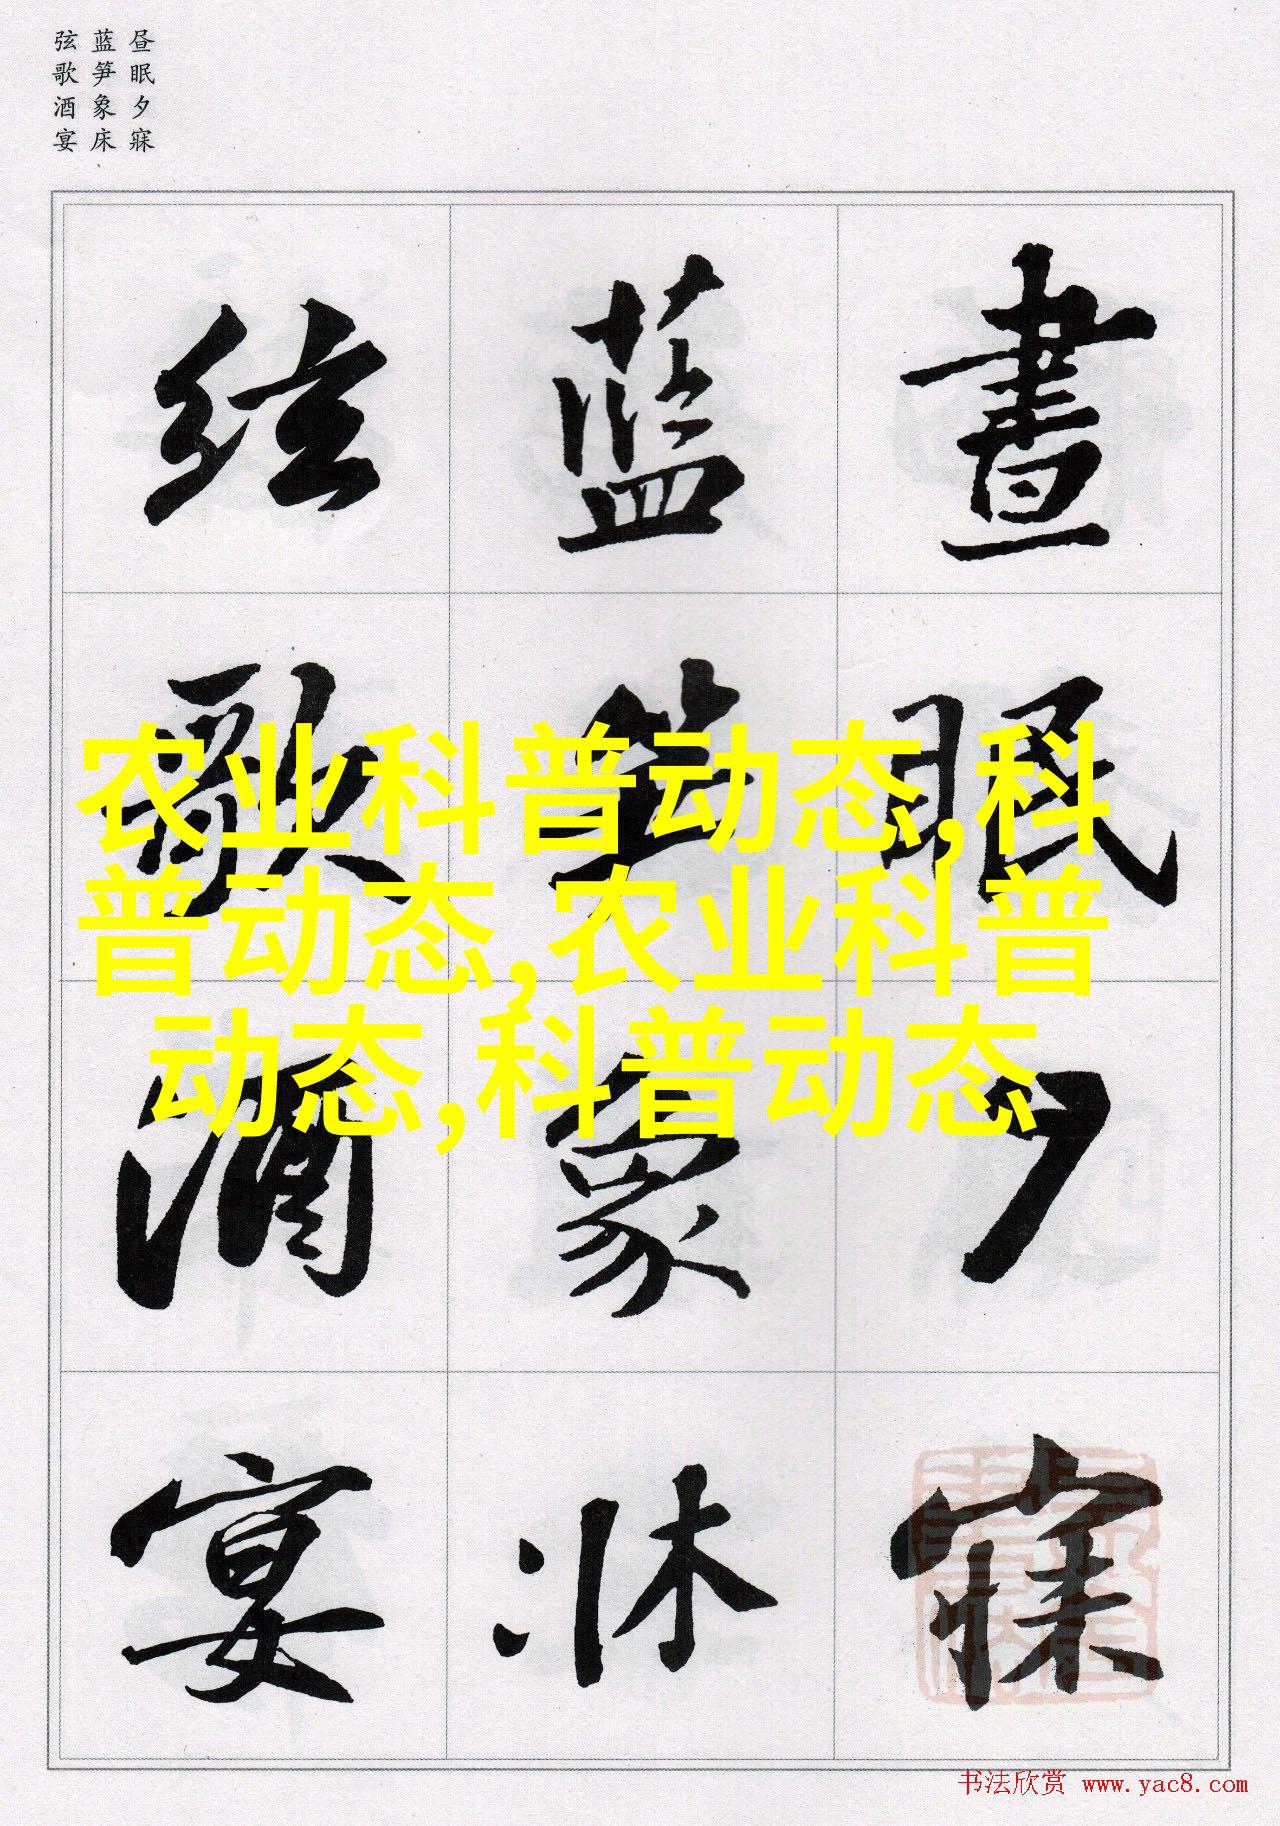 昼眠夕寐
蓝笋象床
弦歌酒宴
晝眠夕寐
蓝笋象牀
弦歌酒宴
农业科普动态,科
普动态,农业科普
动态,科普动态
书法欣赏 www.yac8.com